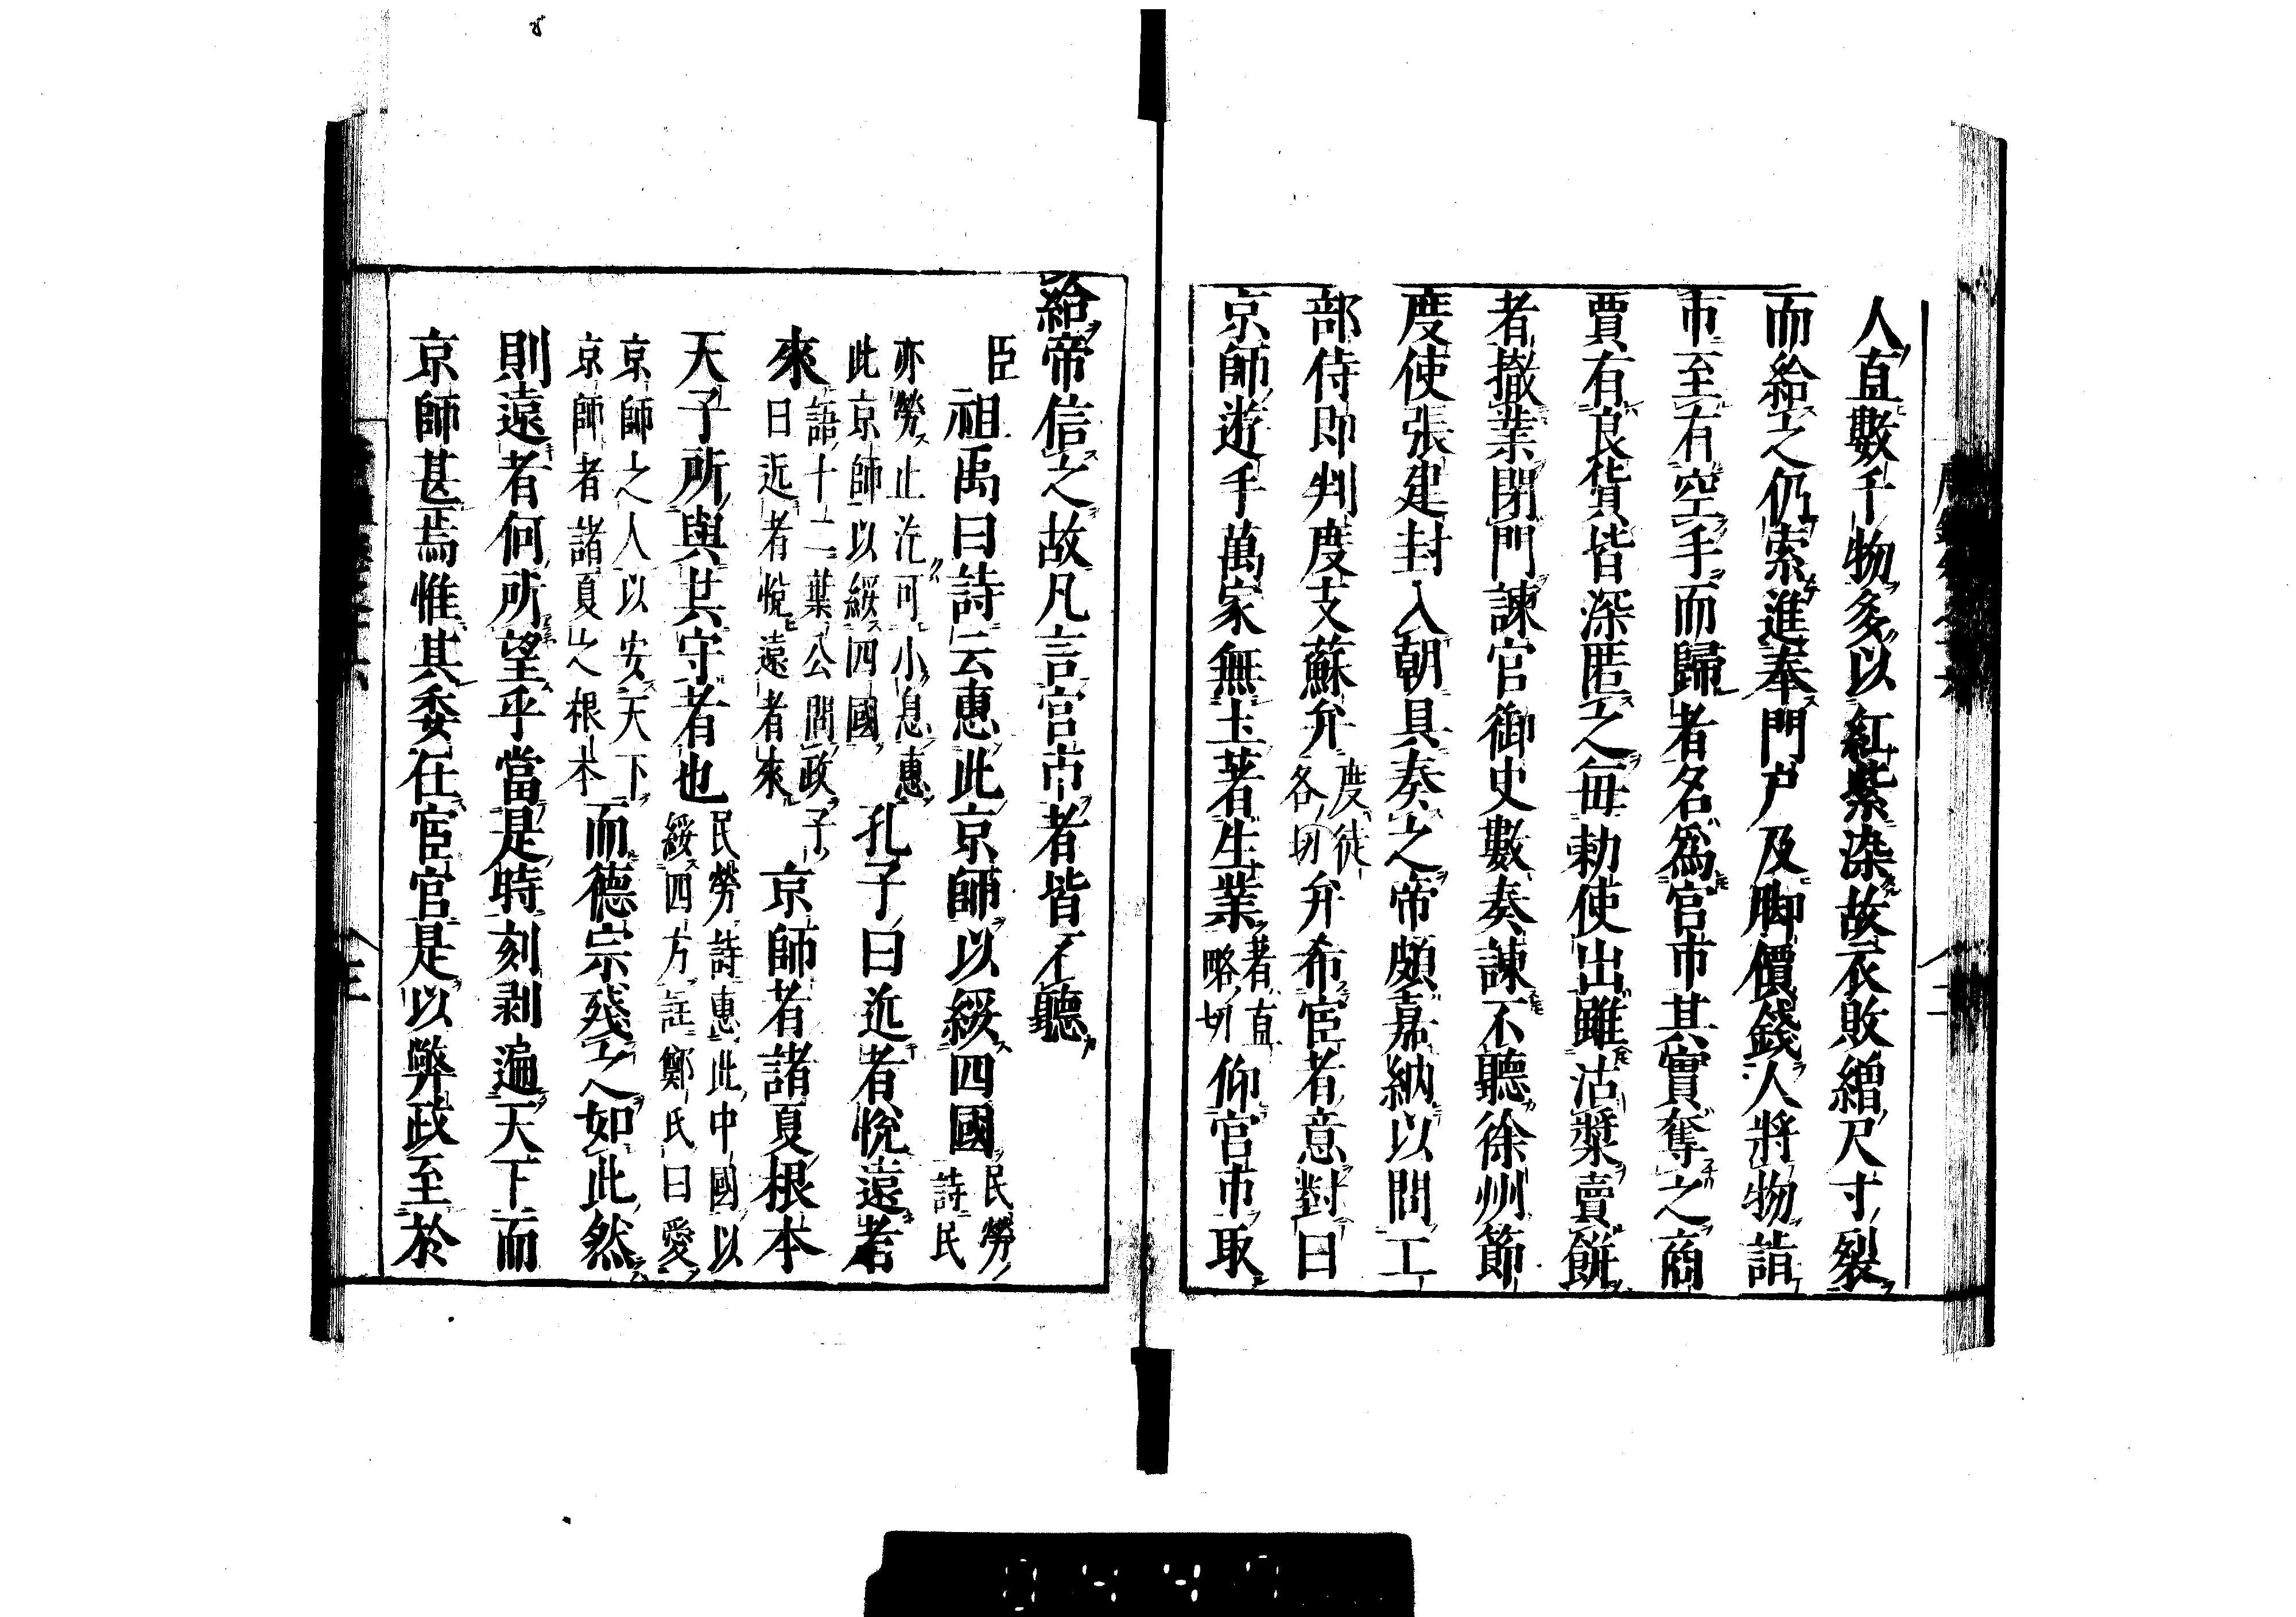 人直數千物多以紅紫染故衣敗繒尺寸裂
而給之仍索進奉門戸及脚價錢人將物詣
市至有空手而歸者名爲官市其實奪之商
賈有良貨皆深匿之毎勅使出雖沽漿賣餅
者撤業閉門諫官御史數奏諫不聽徐州節
度使張建封入朝具奏之帝頗嘉納以問工
部侍郎判度支蘇弁度徒各切弁希宦者意對曰
京師遊手萬家無土著生業著直略切仰官市取
給帝信之故凡言官市者皆不聽
臣祖禹曰詩云惠此京師以綏四國民勞詩民
亦勞止汔可小息惠此京師以綏四國孔子曰近者悅遠者
來語十二葉公問政子曰近者悅遠者來京師者諸夏根本
天子所與共守者也民勞詩惠此中國以綏四方註鄭氏曰愛
京師之人以安天下京師者諸夏之根本而德宗殘之如此然
則遠者何所望乎當是時刻剥遍天下而
京師甚焉惟其委任宦官是以弊政至於